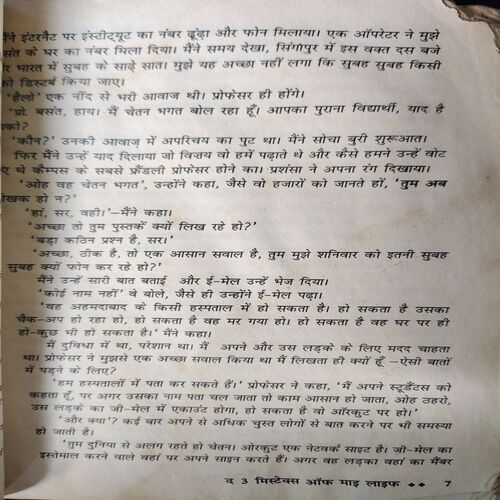 मैंने इंटरनैट पर इंस्टीट्यूट का नंबर ढूंढ़ा और फोन मिलाया। एक ऑपरेटर ने मुझे
संत के घर का नंबर मिला दिया। मैंने समय देखा, सिंगापुर में इस वक्त दस बजे
र भारत में सुबह के साढ़े सात। मुझे यह अच्छा नहीं लगा कि सुबह सुबह किसी
को डिस्टर्ब किया जाए।
'हैलो' एक नींद से भरी आवाज थी। प्रोफेसर ही होंगे।
'प्रो. बसंत, हाय। मैं चेतन भगत बोल रहा हूँ। आपका पुराना विद्यार्थी, याद है
पको?'
'कौन?' उनकी आवाज़ में अपरिचय का पुट था। मैंने सोचा बुरी शुरूआत।
फिर मैंने उन्हें याद दिलाया जो विजय वो हमें पढ़ाते थे और कैसे हमने उन्हें वोट
ए थे कैम्पस के सबसे फ्रैंडली प्रोफेसर होने का। प्रशंसा ने अपना रंग दिखाया।
'ओह वह चेतन भगत', उन्होंने कहा, जैसे वो हजारों को जानते हों, 'तुम अब
लेखक हो न?'
'हां, सर, वही।'–मैंने कहा।
'अच्छा तो तुम पुस्तकें क्यों लिख रहे हो?'
'बड़ा कठिन प्रश्न है, सर।'
'अच्छा, ठीक है, तो एक आसान सवाल है, तुम मुझे शनिवार को इतनी सुबह
सुबह क्यों फोन कर रहे हो?'
मैंने उन्हें सारी बात बताई और ई-मेल उन्हें भेज दिया।
'कोई नाम नहीं' वे बोले, जैसे ही उन्होंने ई-मेल पढ़ा।
'वह अहमदाबाद के किसी हस्पताल में हो सकता है। हो सकता है उसका
चैक-अप हो रहा हो, हो सकता है वह मर गया हो। हो सकता है वह घर पर ही
हो-कुछ भी हो सकता है।' मैंने कहा।
मैं दुविधा में था, परेशान था। मैं अपने और उस लड़के के लिए मदद चाहता
था। प्रोफेसर ने मुझसे एक अच्छा सवाल किया था मैं लिखता ही क्यों हूँ –ऐसी बातों
में पड़ने के लिए?
'हम हस्पतालों में पता कर सकते हैं।' प्रोफेसर ने कहा, 'मैं अपने स्टूडैंटस को
कहता हूँ, पर अगर उसका नाम पता चल जाता तो काम आसान हो जाता, ओह ठहरो,
उस लड़के का जी-मेल में एकाउंट होगा, हो सकता है वो ऑरकुट पर हो।'
'और क्या?' कई बार अपने से अधिक चुस्त लोगों से बात करने पर भी समस्या
हो जाती है।
'तुम दुनिया से अलग रहते हो चेतन। ओरकूट एक नेटवर्क साइट है। जी-मेल का
इस्तेमाल करने वाले वहां पर अपने साइन करते हैं। अगर वह लड़का वहां का मैंबर
द 3 मिस्टेक्स ऑफ माइ लाइफ ◆◆ 7